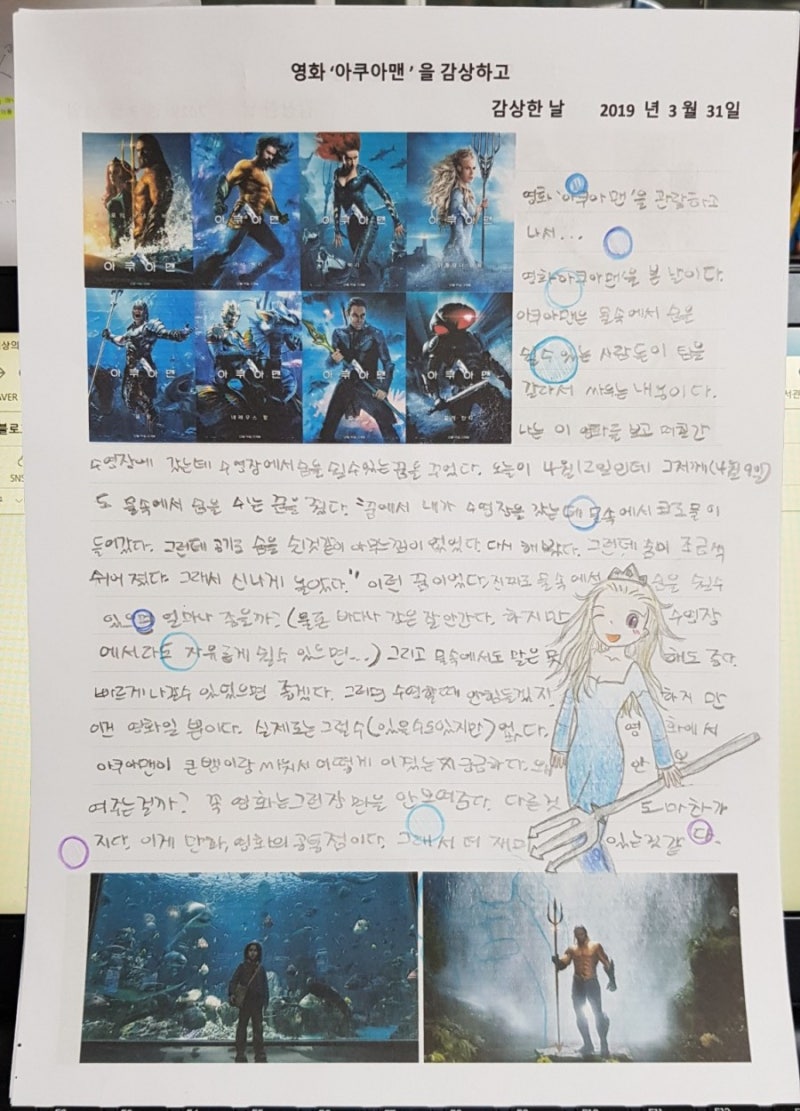 영화 '아쿠아맨' 을 감상하고
감상한 날 2019 년 3 월 31일
아쿠아맨
아쿠아맨
아쿠아맨
아쿠아맨
아쿠아맨
아쿠아맨
아쿠아맨
아쿠아맨
영화 '아쿠아맨'을 관람하고
나서...
영화 아쿠아맨'을 본 날이다.
아쿠아맨은 물속에서 숨을
쉴수 있는 사람들이 팀을
갈라서 싸우는 내용이다.
나는 이 영화를 보고 며칠간
수영장에 갔는데 수영장에서 숨을 쉴수있는 꿈을 꾸었다. 오늘이 4월12일인데 그저께(4월9일)
도 물속에서 숨을 수는 꿈을 꿨다. "꿈에서 내가 수영장을 갔는데 물속에서 코로 물이
들어갔다. 그런데 공기로 숨을 쉰것같이 아무느낌이 없었다. 다시 해봤다. 그런데 숨이 조금씩
쉬어 졌다. 그래서 신나게 놀았다." 이런 꿈이었다. 진짜로 물속에서 숨을 쉴수
있으면 얼마나 좋을까? (물론 바다사 같은 잘안간다. 하지만 수영장
에서라도 자유롭게 쉴수 있으면...) 그리고 물속에서도 말은 못 해도 좋다.
빠르게 나갈수 있었으면 좋겠다. 그러면 수영할때 안힘들겠지. 하지 만
이건 영화일 뿐이다. 실제로는 그럴수(있을수도있지만) 없다. 영 화에서
아쿠아맨이 큰 뱀이랑 싸워서 어떻게 이겼는지 궁금하다. 왜 안 보
여주는걸까? 꼭 영화는그런장 만을 안보여준다. 다른것 도 마찬가
지다. 이게 만화, 영화의 공통점이다. 그래서 더 재미 있는것 같 다.